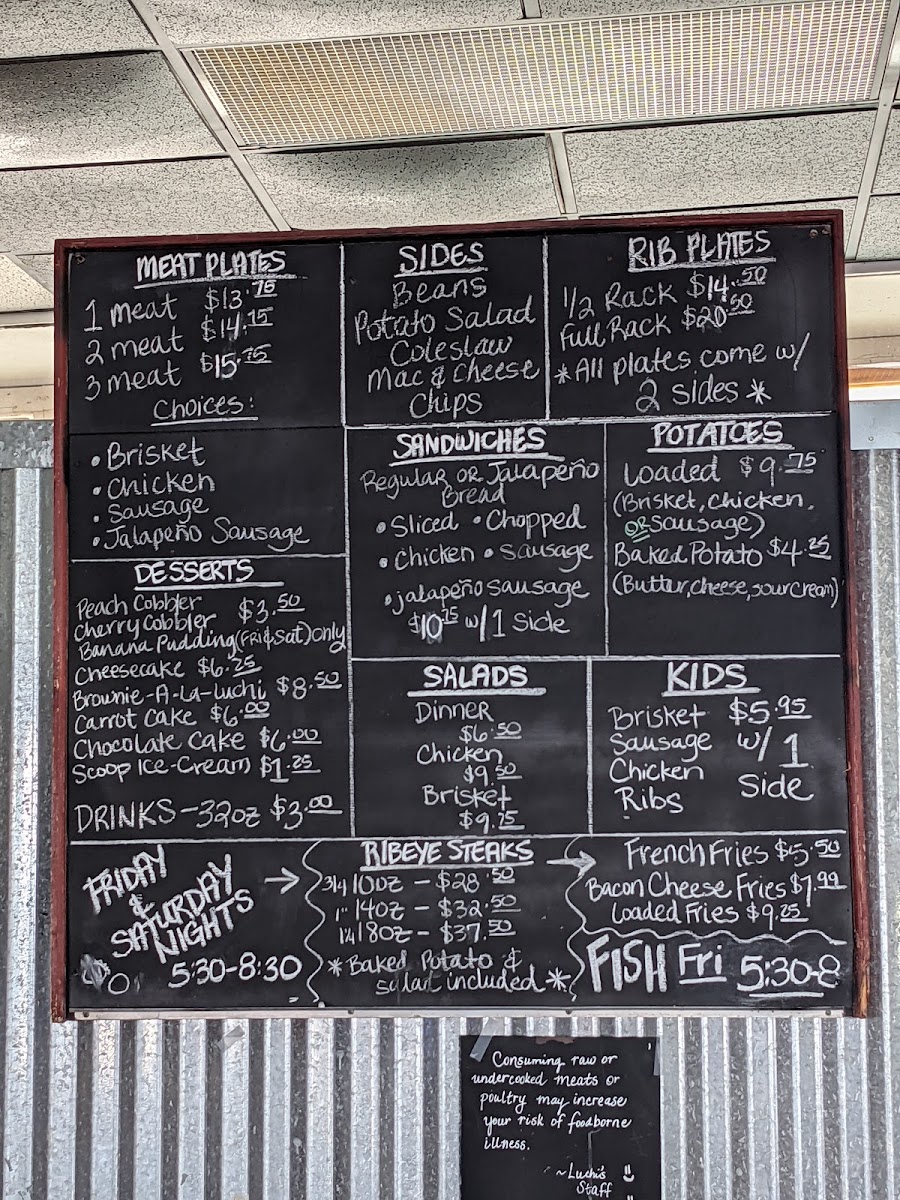 MEAT PLATES
1 meat $13.75
2 meat $14.75
3 meat $15.75
Choices:
• Brisket
• Chicken
• Sausage
• Jalapeño Sausage
SIDES
Beans
Potato Salad
Coleslaw
Mac & Cheese
Chips
RIB PLATES
1/2 Rack $14.50
Full Rack $20.50
*All plates come w/
2 sides*
SANDWICHES
Regular OR Jalapeño
Bread
• Sliced • Chopped
• Chicken • Sausage
• jalapeño sausage
$10.75 w/1 Side
POTATOES
Loaded $9.75
(Brisket, Chicken,
OR Sausage)
Baked Potato $4.25
(Butter, Cheese, sour cream)
DESSERTS
Peach Cobbler
Cherry Cobbler $3.50
Banana Pudding (FRI & Sat) Only
Cheesecake $6.25
Brownie-A-La-Luchi $8.50
Carrot Cake $6.00
Chocolate Cake $6.00
Scoop Ice-Cream $1.25
DRINKS - 32oz $3.00
SALADS
Dinner
$6.50
Chicken
$9.50
Brisket
$9.75
KIDS
Brisket $5.95
Sausage w/1
Chicken Side
Ribs
FRIDAY
&
SATURDAY
NIGHTS
5:30-8:30
RIBEYE STEAKS
3/4 10oz - $28.50
1" 14oz - $32.50
1 1/4 18oz - $37.50
*Baked Potato &
salad included*
French Fries $5.50
Bacon Cheese Fries $7.99
Loaded Fries $9.25
FISH Fri 5:30-8
Consuming raw or
undercooked meats or
poultry may increase
your risk of foodborne
illness.
~Luchi's
Staff